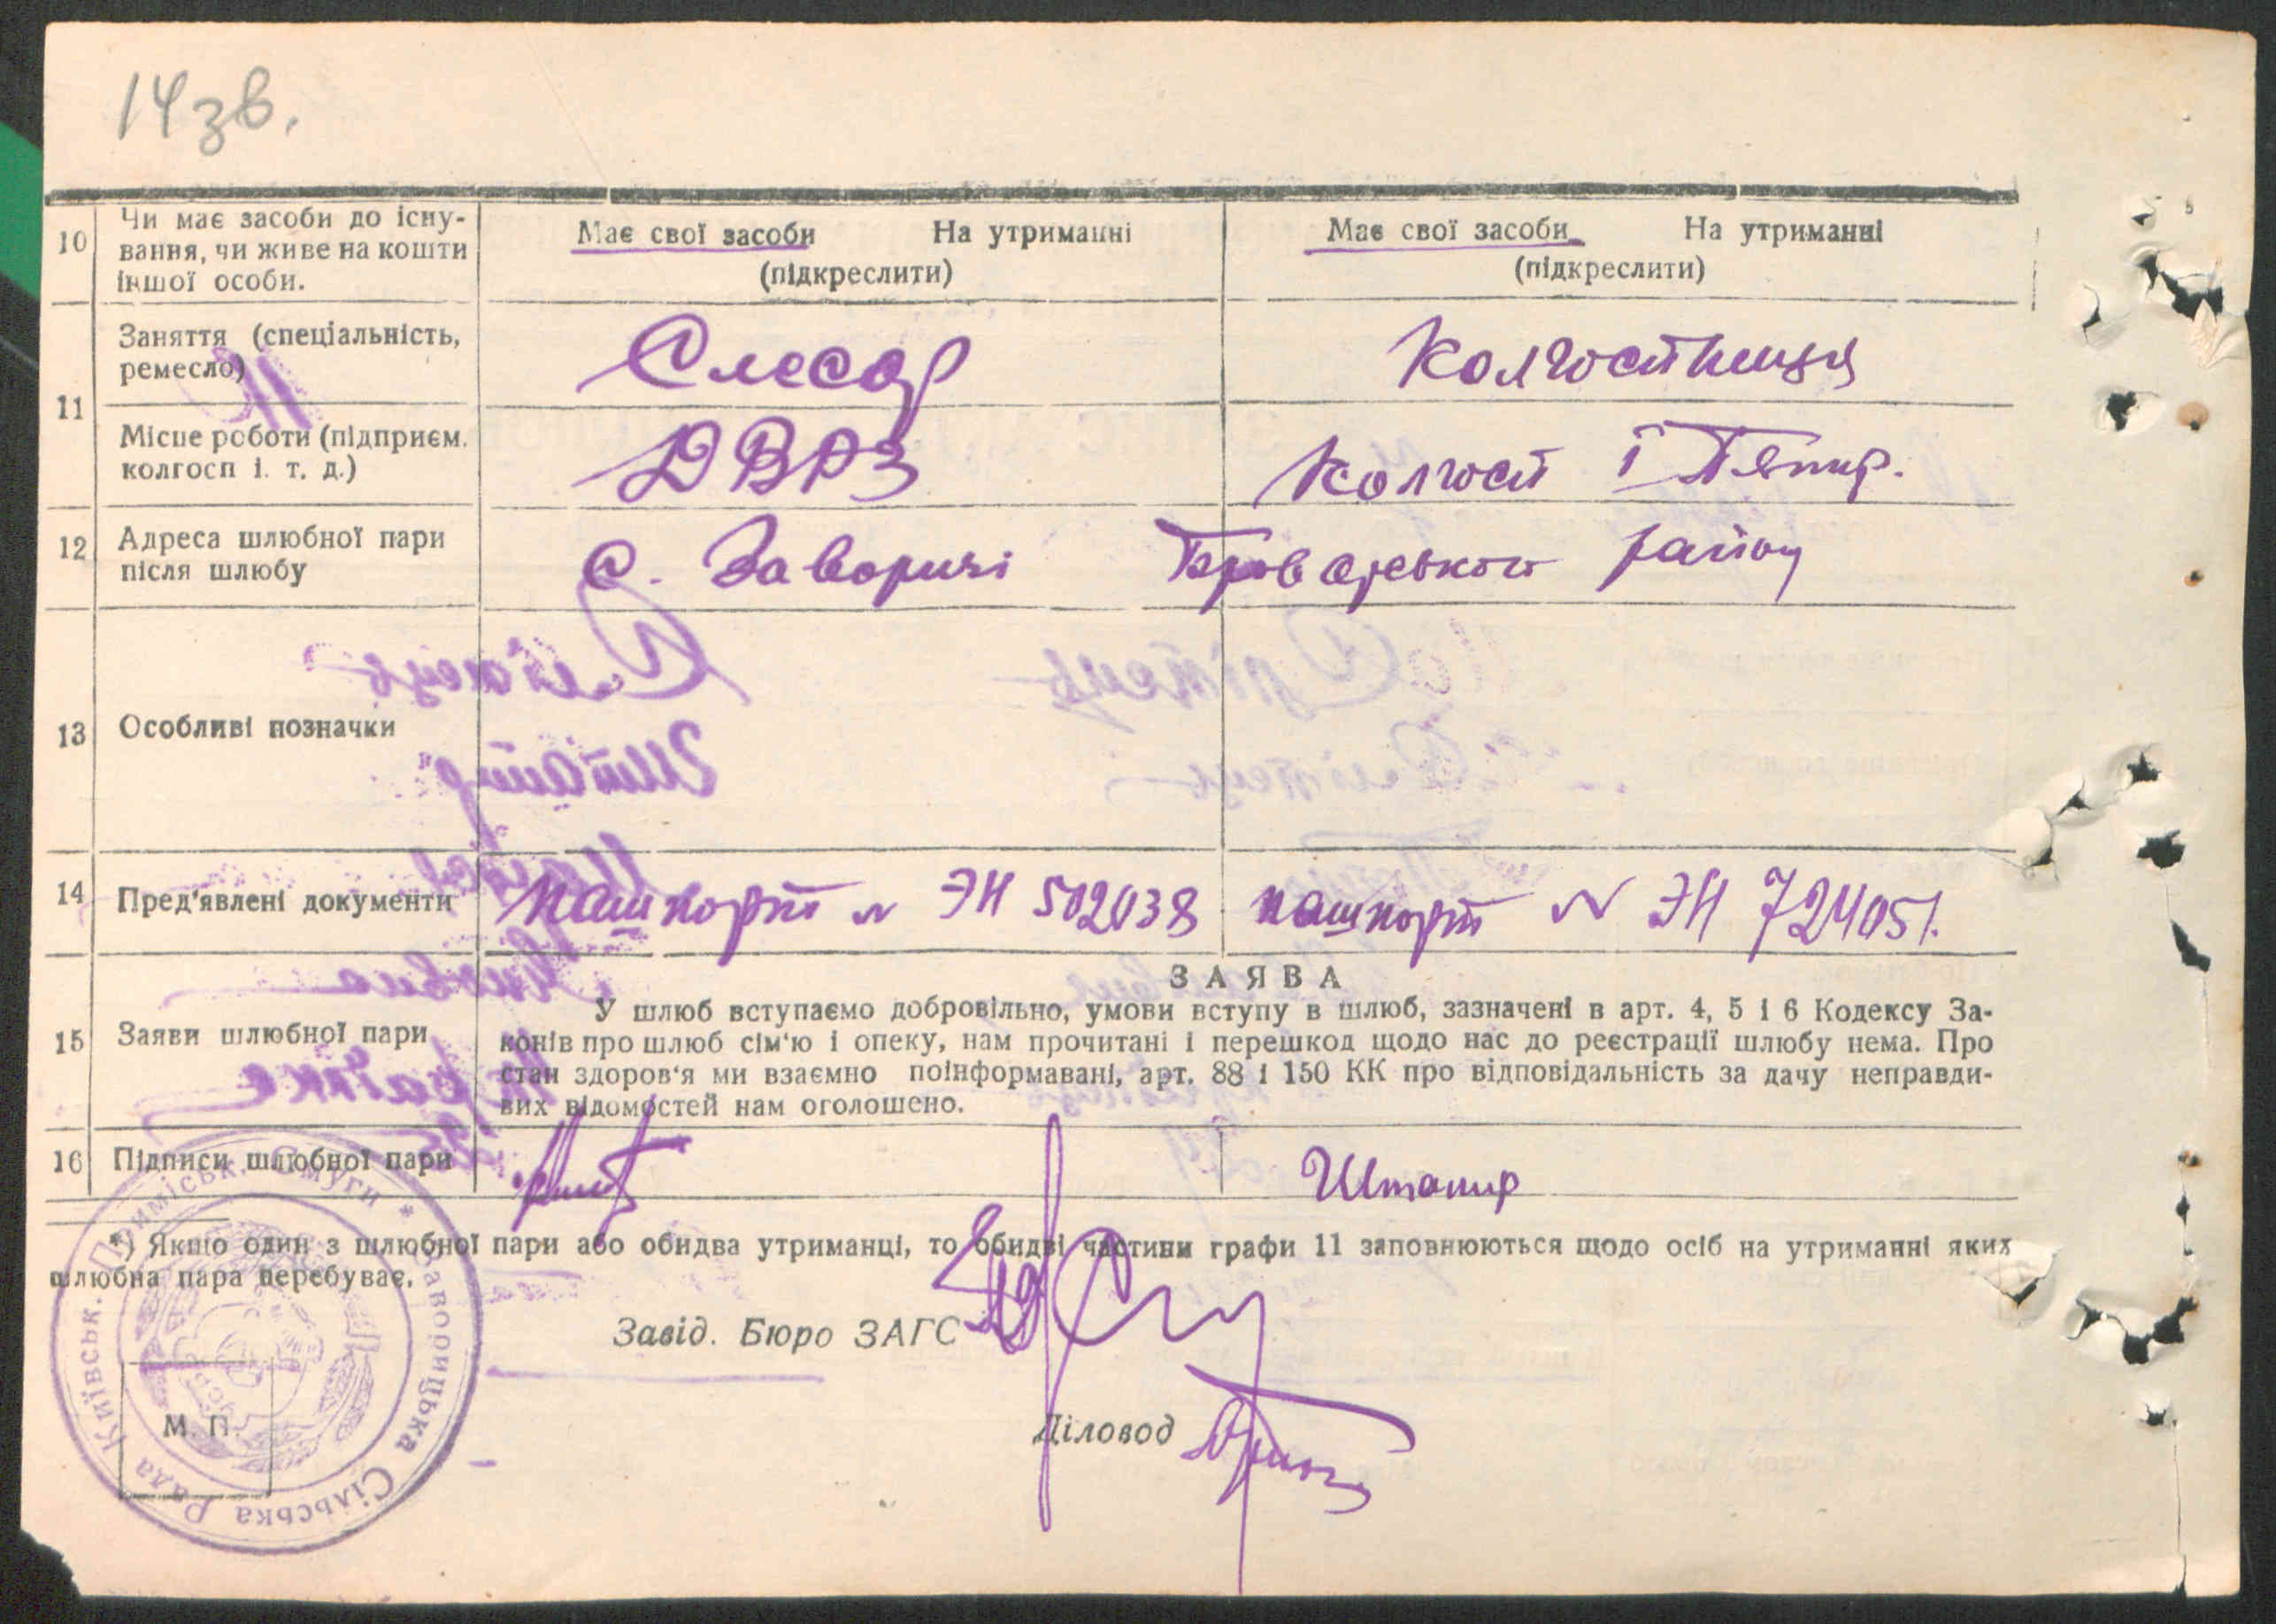 14 зв.
10 Чи має засоби до існу-
вання, чи живе на кошти
іншої особи.
Має свої засоби На утриманні
(підкреслити)
Має свої засоби На утриманні
(підкреслити)
11 Заняття (спеціальність,
ремесло)
Слесар
Колгоспниця
Місце роботи (підприєм.
колгосп і. т. д.)
ДВРЗ
Колгосп
12 Адреса шлюбної пари
після шлюбу
с. Заворичі Броварського району
13 Особливі позначки
14 Пред'явлені документи
пашпорт № ЭН 502038
пашпорт № ЭН 724051.
15 Заяви шлюбної пари
ЗАЯВА
У шлюб вступаємо добровільно, умови вступу в шлюб, зазначені в арт. 4, 5 і 6 Кодексу За-
конів про шлюб сім'ю і опеку, нам прочитані і перешкод щодо нас до реєстрації шлюбу нема. Про
стан здоров'я ми взаємно поінформавані, арт. 88 і 150 КК про відповідальність за дачу неправди-
вих відомостей нам оголошено.
16 Підписи шлюбної пари
Штапир
*) Якщо один з шлюбної пари або обидва утриманці, то обидві частини графи 11 заповнюються щодо осіб на утриманні яких
шлюбна пара перебуває.
Завід. Бюро ЗАГС
Діловод
М. П.
Заворицька Сільська Рада Київськ. Приміськ. Смуги *